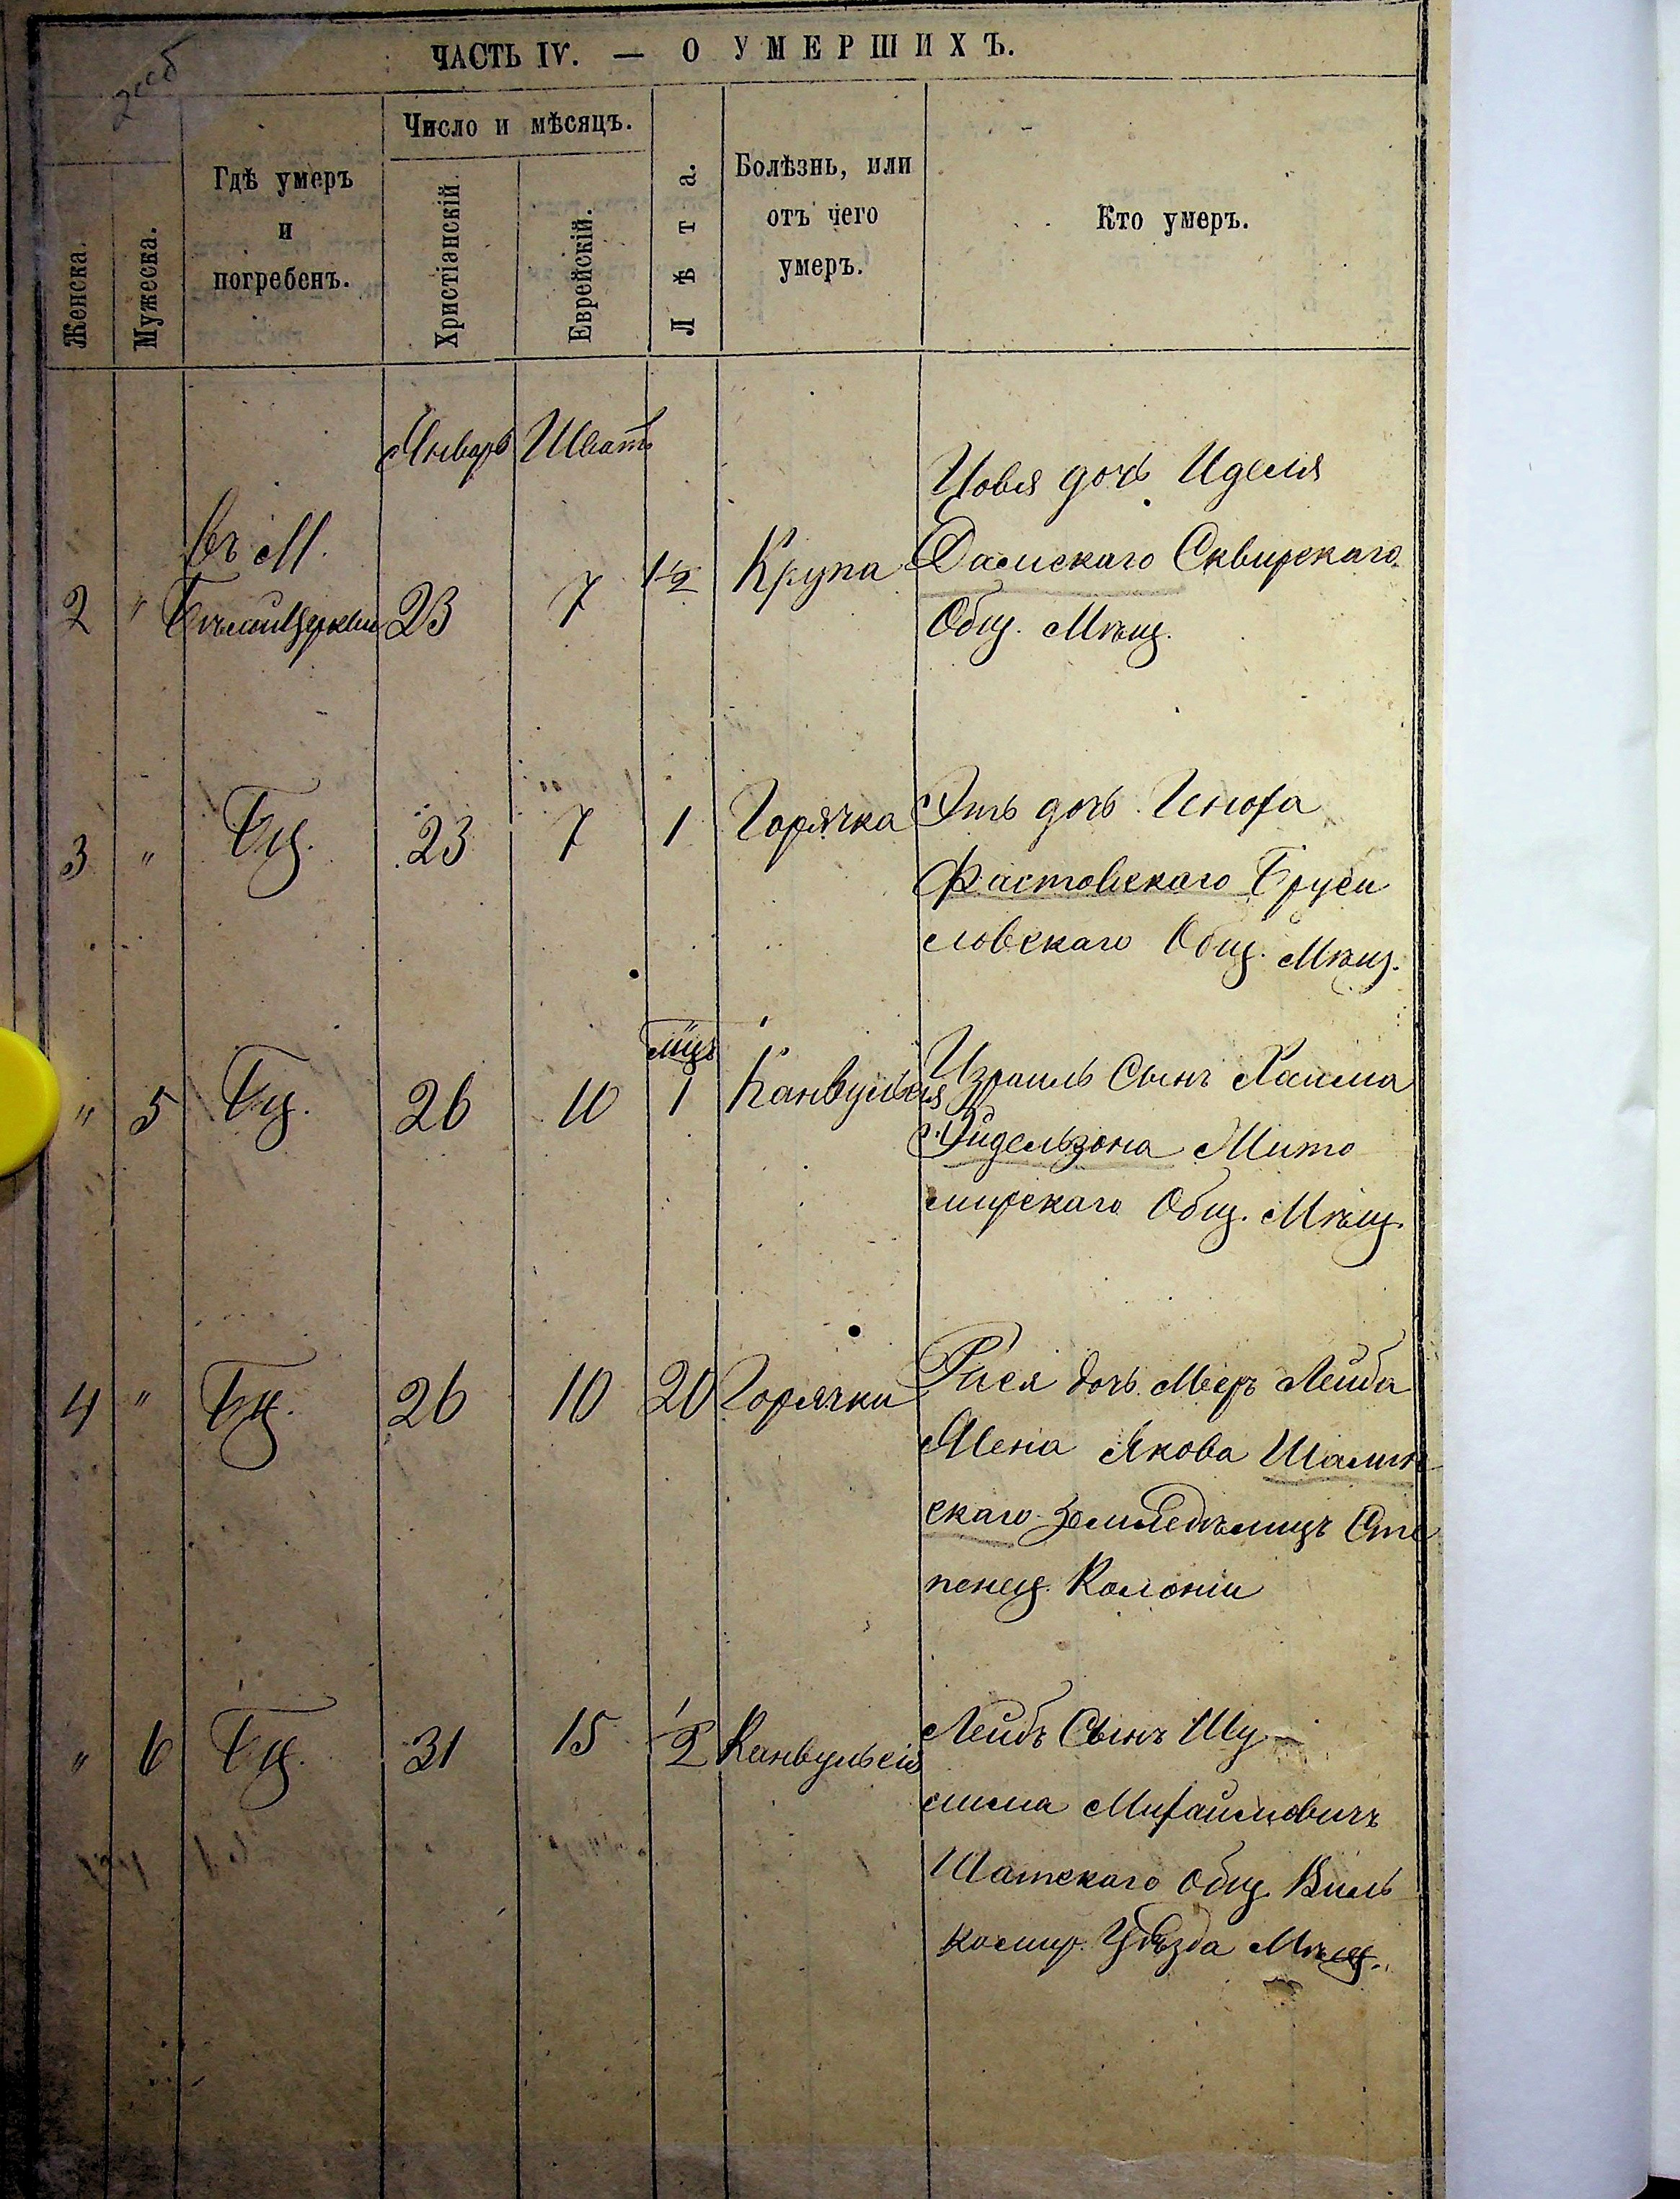 ЧАСТЬ IV. — О УМЕРШИХЪ.
Женска.
Мужеска.
Гдѣ умеръ
и
погребенъ.
Число и мѣсяцъ.
Христіанскій
Еврейскій.
Лѣта.
Болѣзнь, или
отъ чего
умеръ.
Кто умеръ.
Январь Шватъ
въ М.
2 " Бѣлайцеркви 23 7 1½ Крупа
дочь Иделя
Сквирскаго
Общ. Мѣщ.
3 " Бц. 23 7 1 Горячка
Эть дочь Геноха
Фастовскаго Бруси
ловскаго Общ. Мѣщ.
мцъ
" 5 Бц. 26 10 1 Канвульсія
Израиль Сынъ Хаима
Эйдельзона Жито
мирскаго Общ. Мѣщ.
4 " Бц. 26 10 20 Горячки
Рися дочь Меер Лейба
Жена Якова Шалин
скаго Земледелицъ Сте
пенец. Колоніи
" 6 Бц. 31 15 ½ Канвульсія
Лейбъ Сынъ Шу
лима Михайловичъ
Шатскаго Общ. Виль
комир. Уѣзда Мѣщ.